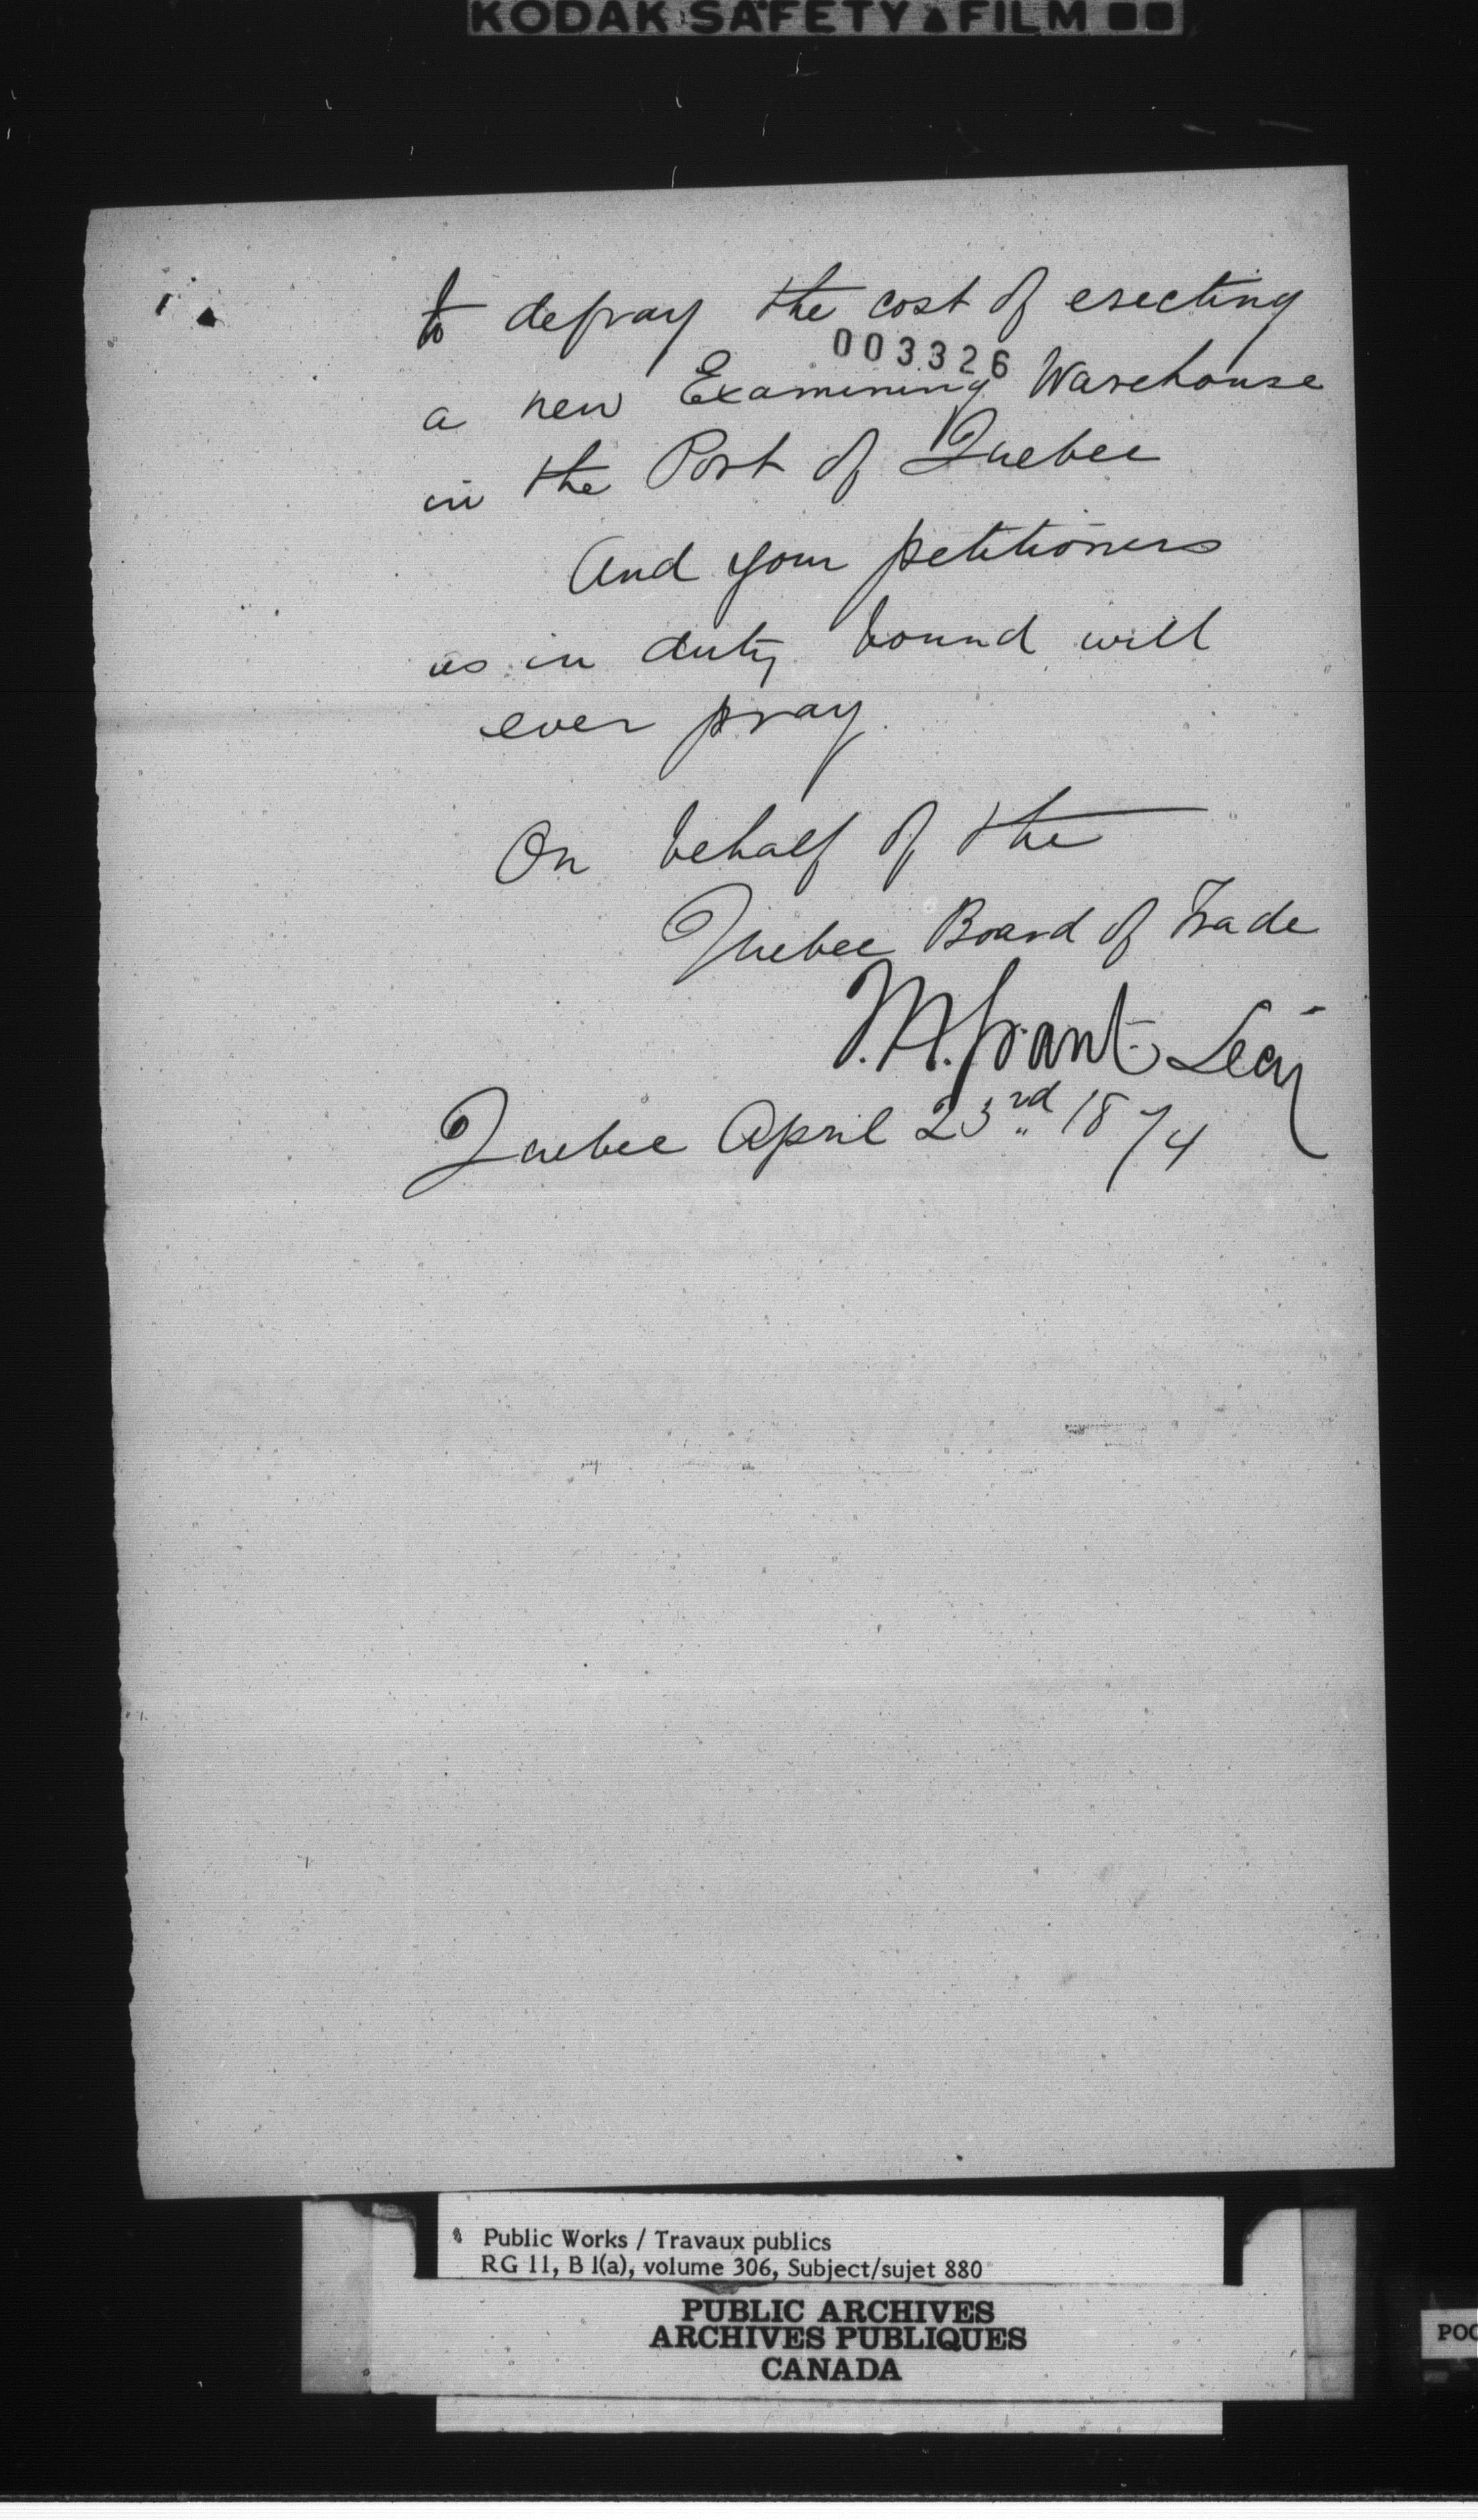 KODAK SAFETY FILM
to defray the cost of erecting
003326
a new Examining Warehouse
in the Port of Quebec
And your petitioners
as in duty bound will
ever pray.
On behalf of the
Quebec Board of Trade
Grant Secy
Quebec April 23rd 1874
Public Works / Travaux publics
RG 11, B 1(a), volume 306, Subject/sujet 880
PUBLIC ARCHIVES
ARCHIVES PUBLIQUES
CANADA